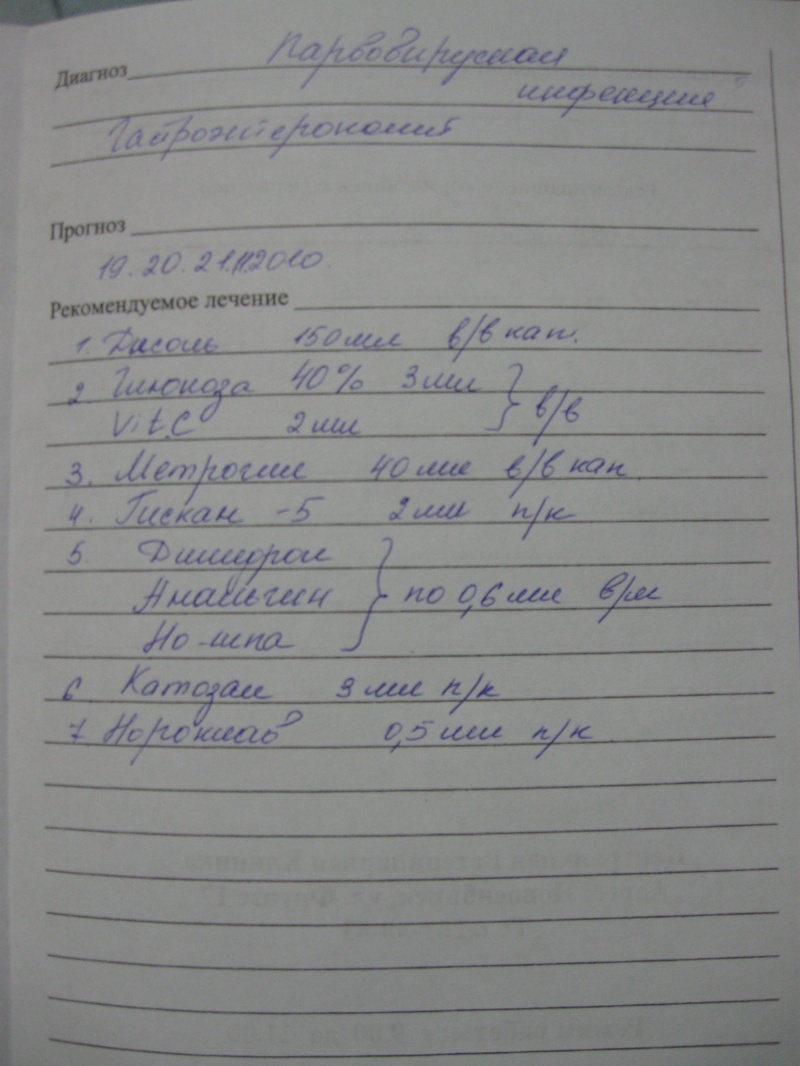 Диагноз Парвовирусная
инфекция
Гастроэнтероколит
Прогноз
19. 20. 21.11.2010.
Рекомендуемое лечение
1. Дисоль 150 мл в/в кап.
2 Глюкоза 40% 3 мл } в/в
Vit. C 2 мл
3. Метрогил 40 мл в/в кап
4. Гискан -5 2 мл п/к
5. Димедрол
Анальгин } по 0,6 мл в/м
Но-шпа
6 Катозал 3 мл п/к
7. Нороклав 0,5 мл п/к